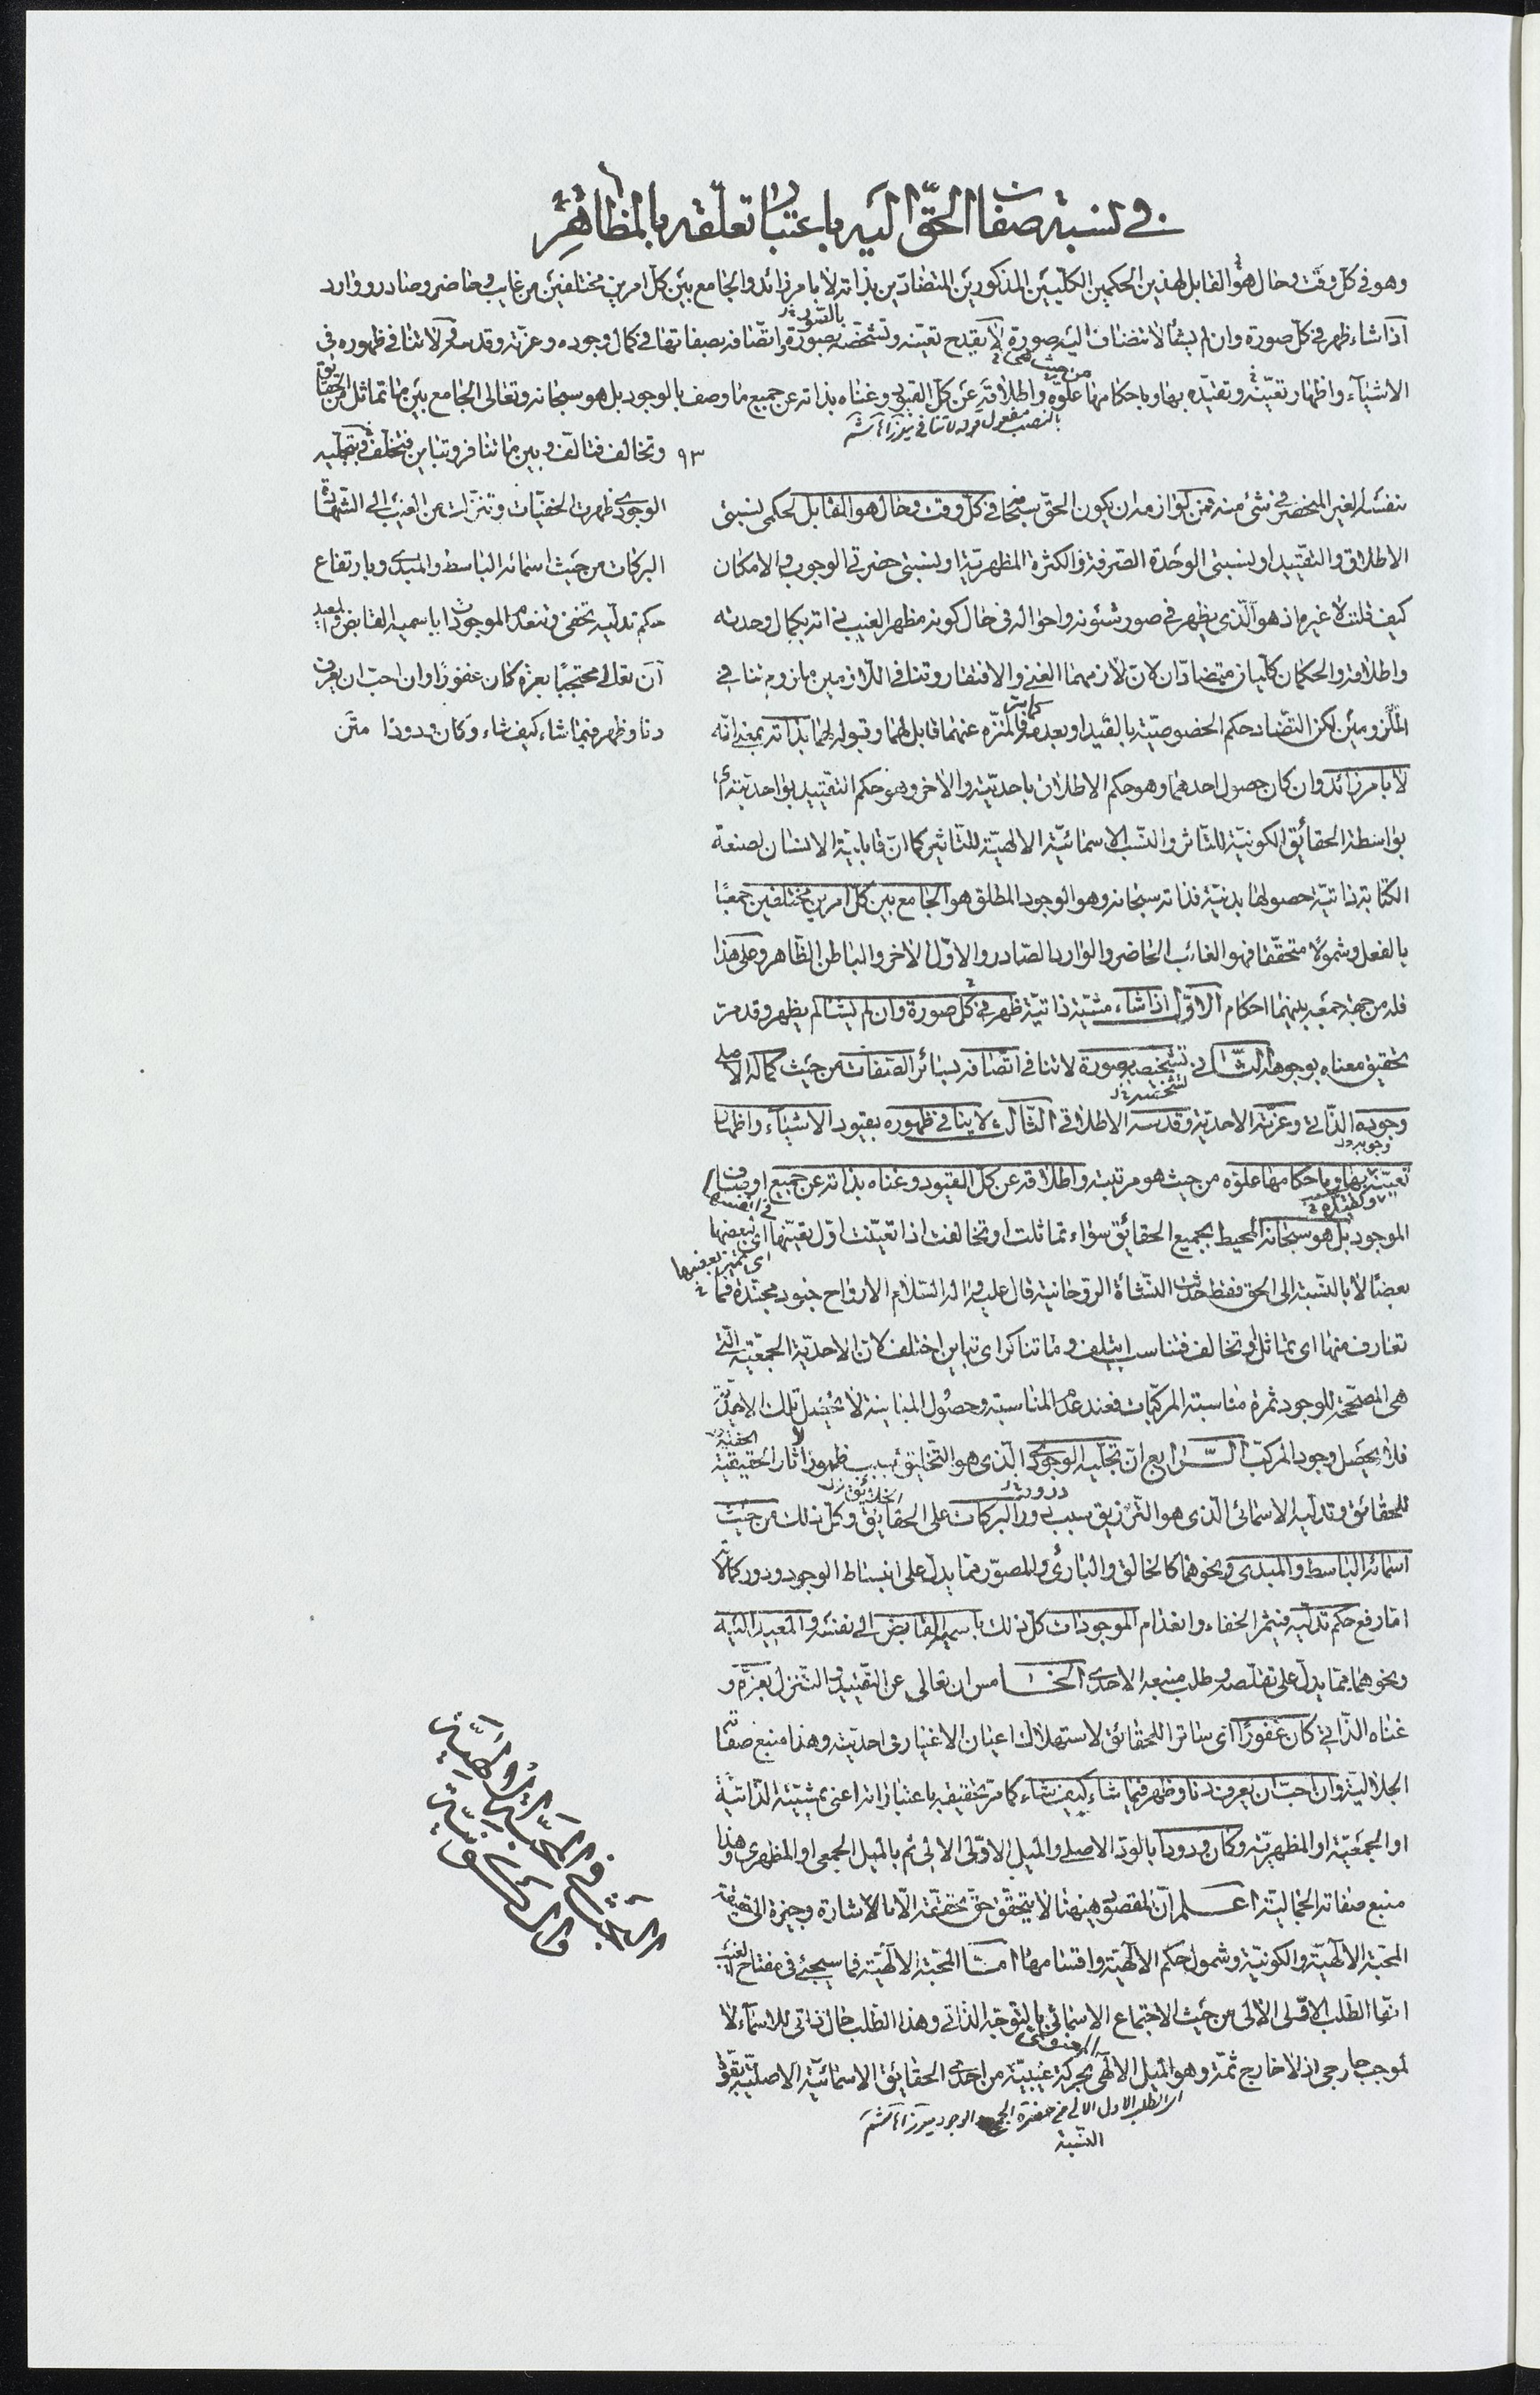 في نسبة صفات الحقّ اليه باعتبار تعلّقه بالمظاهر
وهو في كلّ وقت وحال هو القابل لهذين الحكمين الكلّيين المذكورين المتضادّين بذاته لا بامر زائد والجامع بين كلّ امرين مختلفين من غايب وحاضر وصادر ووارد
اذا شاء ظهر في كلّ صورة وان لم يشأ لا تنضاف اليه صورة لا يقدح تعيّنه وتشخّصه بصورة واتّصافه بصفاتها في كمال وجوده وعزّته وقدسه ولا تنافي ظهوره في
بالصور
الاشياء واظهار تعيّنه وتقيّده بها وباحكامها علوّه واطلاقه عن كلّ القيود وغناه بذاته عن جميع ما وصف بالوجود بل هو سبحانه وتعالى الجامع بين ما تماثل من الحقايق
من حيث هى
بالنصب مفعول قوله لا تنافي
وتخالف فتالف وبين ما تنافر وتباين فتخلف فبتجلّيه
٩٣
الوجودى ظهرت الخفيّات وتنزّلت من الغيب الى الشهادة
البركات من حيث اسمائه الباسط والمبدى وبارتفاع
حكم تدلّيه تخفى وتنعدم الموجودات باسميه القابض والمعيد
ان تعالى محتجبًا بعزّه كان غفورًا وان احبّ ان يعرف
دنا وظهر فيما شاء كيف شاء وكان ودودا متن
نفسه الغير المنحصر في شئ منه فمن لوازمه ان يكون الحقّ سبحانه في كلّ وقت وحال هو القابل لحكمى نسبتى
الاطلاق والتقييد او نسبتى الوحدة الصرفة والكثرة المظهريّة او نسبتى حضرتى الوجوب والامكان
كيف قلت لا غيره اذ هو الّذى يظهر في صور شئونه واحواله في حال كونه مظهر الغيب ذاته بكمال وحدته
واطلاقه والحكمان كلّيان متضادّان لانّ لازمهما الغنى والافتقار وتنافى اللّازمين ملزوم تنافى
الملزومين لكن التضاد حكم الخصوصيّة بالقيد او بعدمه فالمنزّه عنهما قابل لهما وقبوله لهما بذاته بمعنى انّه
كما مرّ
لا بامر زائد وان كان حصول احدهما وهو حكم الاطلاق باحديّته والاخر وهو حكم التقييد بواحديّته اى
بواسطة الحقائق الكونيّة للتاثر والنسب الاسمائيّة الالهيّة للتاثير كما انّ قابليّة الانسان لصنعة
الكتابة ذاتيّة حصولها بدنيّة فذاته سبحانه وهو الوجود المطلق هو الجامع بين كلّ امرين مختلفين جمعًا
بالفعل وشمولًا متحقّقا فهو الغائب الحاضر والوارد الصّادر والاوّل الاخر والباطن الظّاهر وعلى هذا
فله من جهة جمعه بينهما احكام الاوّل اذا شاء مشيّة ذاتيّة ظهر في كلّ صورة وان لم يشأ لم يظهر وقد مرّ
تحقيق معناه بوجوهه الثّانى تشخّصه بصورة لا تنافى اتّصافه بسائر الصّفات من حيث كماله الاصلى
وجوده الذّاتى وعزّته الاحديّة وقدسه الاطلاقى الثّالث لا ينافى ظهوره بقيود الاشياء واظهار
تعيّنه بها وباحكامها علوّه من حيث هو مرتبته واطلاقه عن كلّ القيود وغناه بذاته عن جميع اوصاف
الموجود بل هو سبحانه المحيط بجميع الحقائق سواء تماثلت او تخالفت اذا تعيّنت اوّل تعيّنها اى بعضها
اى تميّز بعضها
بعضًا لا بالنّسبة الى الحق فقط حدثت النشأة الروحانية قال عليه واله السّلام الارواح جنود مجنّدة فما
تعارف منها اى تماثل او تخالف فتناسب ايتلف وما تناكر اى تباين اختلف لانّ الاحديّة الجمعيّة الّتى
هى المصحّحة للوجود ثمرة مناسبة المركّبات فعند عدم المناسبة وحصول المباينة لا يحصل تلك الاحديّة
فلا يحصل وجود المركّب الرّابع انّ تجلّيه الوجودى الّذى هو التّخليق سبب ظهور اثار الحقيقيّة
الخفيّة
للحقائق وتدلّيه الاسمائى الّذى هو التّرزيق سبب درور البركات على الحقايق وكلّ ذلك من حيث
اسمائه الباسط والمبدى ونحوهما كالخالق والبارئ والمصوّر ممّا يدلّ على انبساط الوجود ودرور كمالاته
امّا رفع حكم تدلّيه فيثمر الخفاء وانعدام الموجودات كلّ ذلك باسميه القابض الى نفسه والمعيد اليه
ونحوهما ممّا يدلّ على تقلّصه وطلب منبعه الاحدى الخامس ان تعالى عن التقييد والتنزل بعزّه و
غناه الذّاتى كان غفورًا اى ساترا للحقائق لاستهلاك اعيان الاغيار في احديّته وهذا منبع صفاته
الجلاليّة وان احبّ ان يعرف دنا وظهر فيما شاء كيف شاء كما مرّ تحقيقه باعتباراته اعنى بمشيّته الذّاتيّة
او الجمعيّة او المظهريّة وكان ودودا بالودّ الاصلى والميل الاوّلى الالى ثم بالميل الجمعى او المظهرى وهذا
منبع صفاته الجماليّة اعلم انّ المقصود هيهنا لا يتحقّق حقّ تحقّقه الّا بالاشارة وجيزة الى تحقيق
المحبّة الالهيّة والكونيّة وشمول حكم الالهيّة واقسامها امّا المحبّة الالهيّة فما سيجئ في مفتاح الغيب
انّها الطّلب الاوّلى الالى من حيث الاجتماع الاسمائى بالتوجّه الذّاتى وهذا الطّلب حال ذاتى للاسماء لا
لموجب خارجى اذ لا خارج ثمّة وهو الميل الالهى بحركة غيبيّة من احدى الحقائق الاسمائيّة الاصليّة بقوّة
النّسبة
الاشارة الى المحبّة الالهيّة
والكونيّة